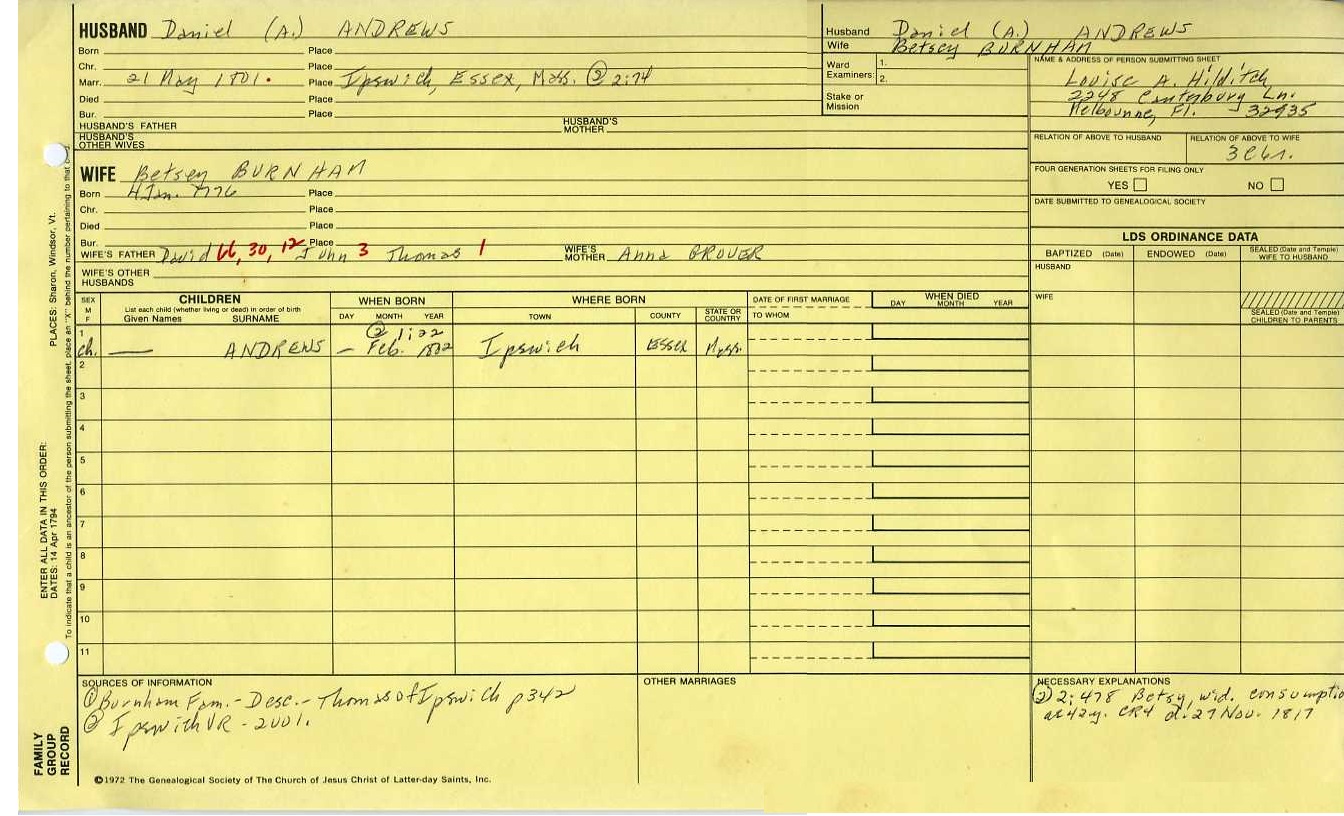 HUSBAND Daniel (A.) ANDREWS
Born Place
Chr. Place
Marr. 21 May 1801. Place Ipswich, Essex, Mass. ② 2:74
Died Place
Bur. Place
HUSBAND'S FATHER HUSBAND'S MOTHER
HUSBAND'S OTHER WIVES
Husband Daniel (A.) ANDREWS
Wife Betsey BURNHAM
Ward Examiners: 1.
2.
Stake or Mission
NAME & ADDRESS OF PERSON SUBMITTING SHEET
Louise A. Hilditch
2248 Canterbury Ln.
Melbourne, Fl. 32935
RELATION OF ABOVE TO HUSBAND RELATION OF ABOVE TO WIFE
3c6r.
FOUR GENERATION SHEETS FOR FILING ONLY
YES NO
DATE SUBMITTED TO GENEALOGICAL SOCIETY
WIFE Betsey BURNHAM
Born 4 Jan. 1776 Place
Chr. Place
Died Place
Bur. Place
WIFE'S FATHER David 66, 30, 12 John 3 Thomas 1 WIFE'S MOTHER Anna GROVER
WIFE'S OTHER HUSBANDS
LDS ORDINANCE DATA
BAPTIZED (Date) ENDOWED (Date) SEALED (Date and Temple) WIFE TO HUSBAND
HUSBAND
WIFE
SEALED (Date and Temple) CHILDREN TO PARENTS
SEX M F CHILDREN WHEN BORN WHERE BORN DATE OF FIRST MARRIAGE WHEN DIED
List each child (whether living or dead) in order of birth
Given Names SURNAME DAY MONTH YEAR TOWN COUNTY STATE OR COUNTRY TO WHOM DAY MONTH YEAR
② 1:22
1 ch. — ANDREWS — Feb. 1802 Ipswich Essex Mass.
2
3
4
5
6
7
8
9
10
11
SOURCES OF INFORMATION
① Burnham Fam. - Desc. - Thomas of Ipswich p342
② Ipswich VR - 2001.
OTHER MARRIAGES
NECESSARY EXPLANATIONS
② 2:478 Betsy, wid. consumptio
ae 42y. CR4 d. 27 Nov. 1817
©1972 The Genealogical Society of The Church of Jesus Christ of Latter-day Saints, Inc.
FAMILY GROUP RECORD
ENTER ALL DATA IN THIS ORDER:
DATES: 14 Apr 1794 PLACES: Sharon, Windsor, Vt.
To indicate that a child is an ancestor of the person submitting the sheet, place an "X" behind the number pertaining to that